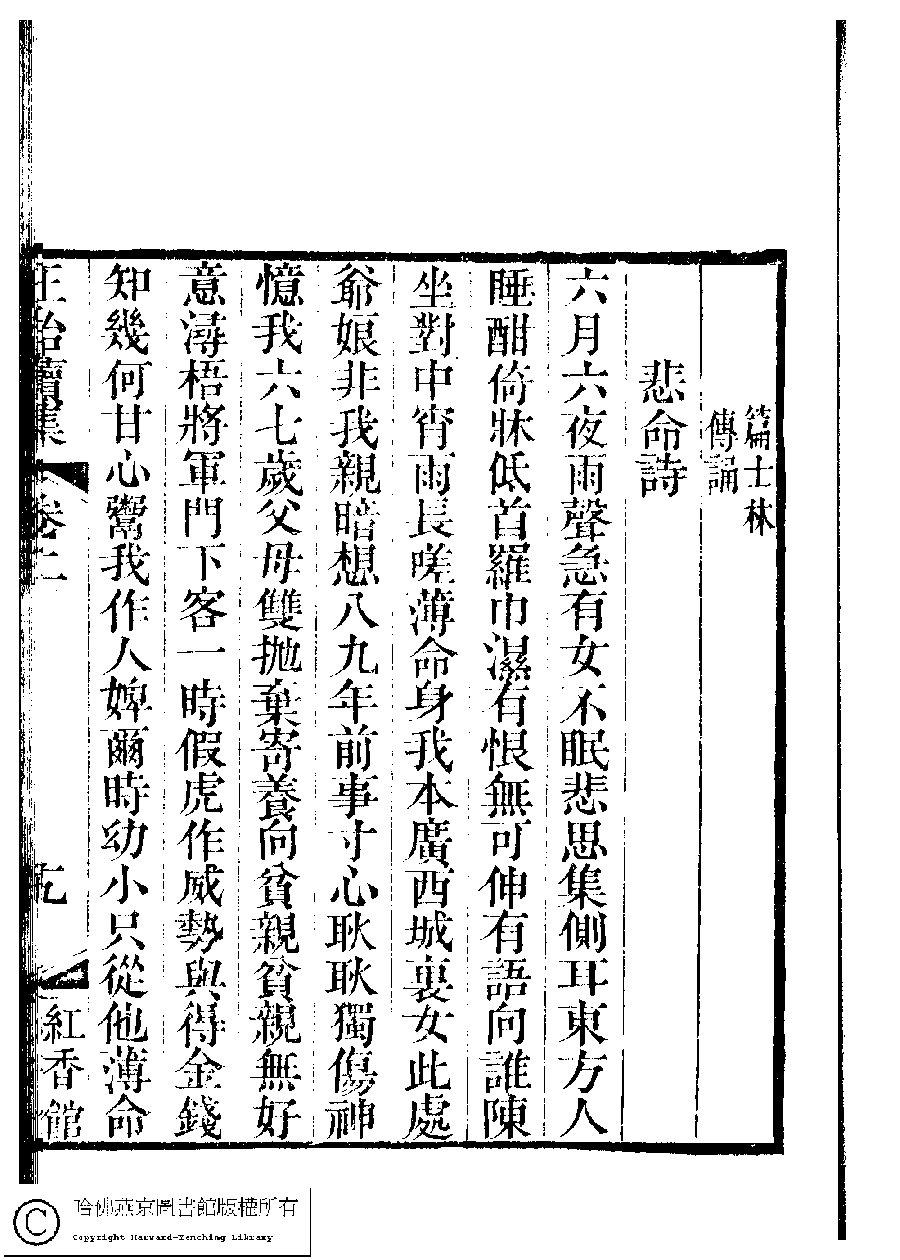 篇士林
傳誦
悲命詩
六月六夜雨聲急有女不眠悲思集側耳東方人
睡酣倚牀低首羅巾濕有恨無可伸有語向誰陳
坐對中宵雨長嗟薄命身我本廣西城裏女此處
爺娘非我親暗想八九年前事寸心耿耿獨傷神
憶我六七歲父母雙拋棄寄養向貧親貧親無好
意潯梧將軍門下客一時假虎作威勢與得金錢
知幾何甘心鬻我作人婢爾時幼小只從他薄命
卷二
九
紅香館
哈佛燕京圖書館版權所有
Copyright Harvard-Yenching Library